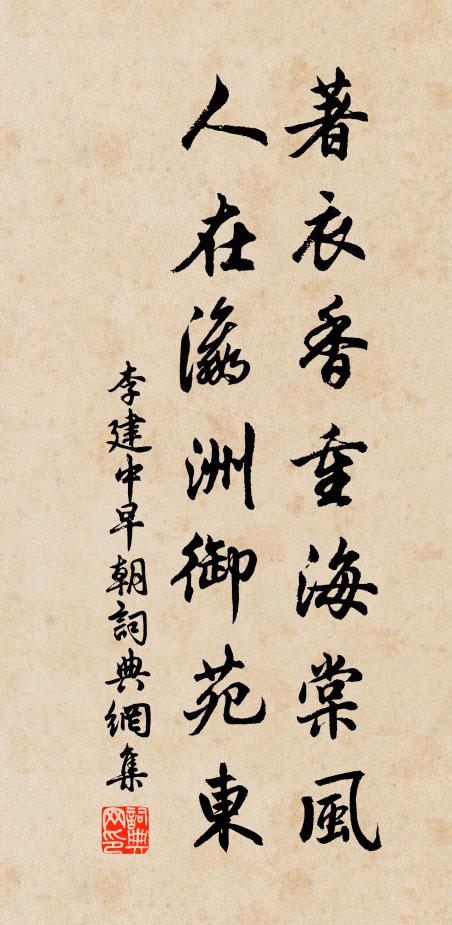 著衣香重海棠風
人在瀛洲御苑東
李建中早朝詞典網集
詞典
网印